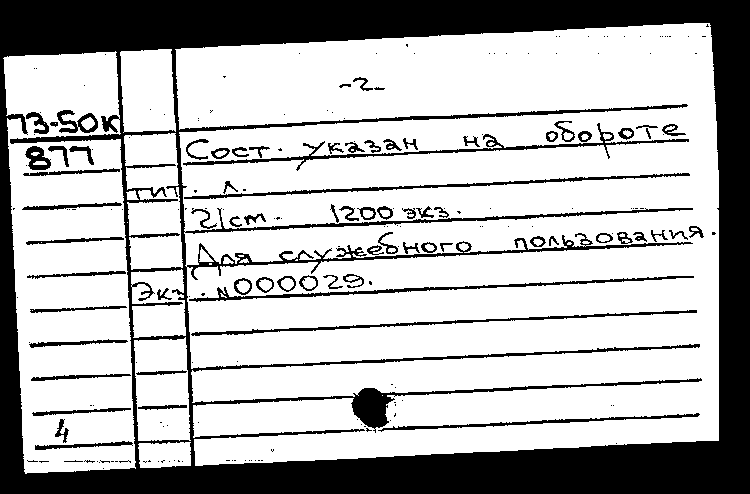 -2-
73-50к
877
Сост. указан на обороте
тит. л.
21cm. 1200 экз.
Для служебного пользования.
Экз. N000029.
4